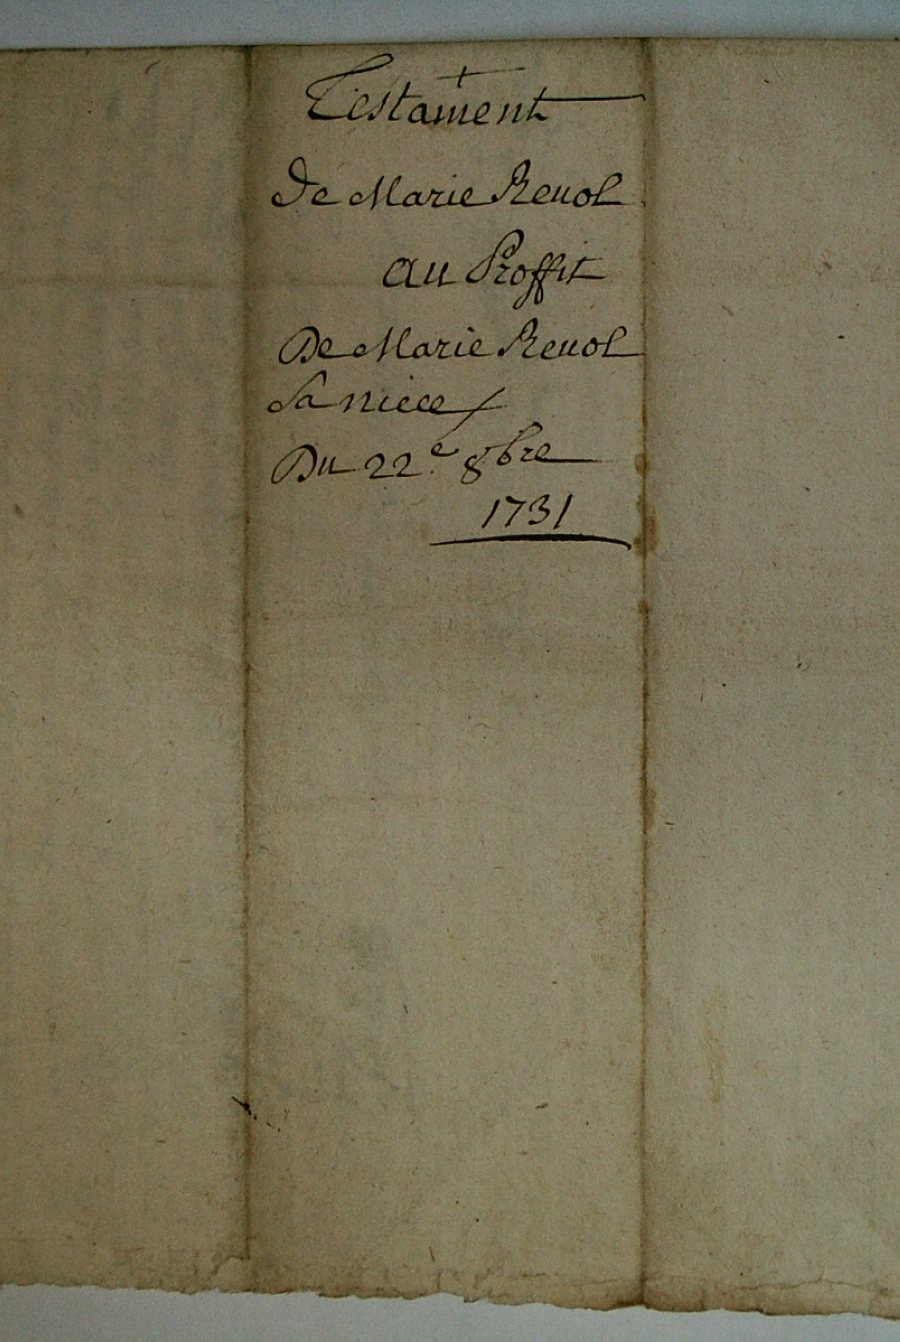 Testament
De Marie Reuol
au Proffit
De Marie Reuol
Sa niece
Du 22e 8bre
1731